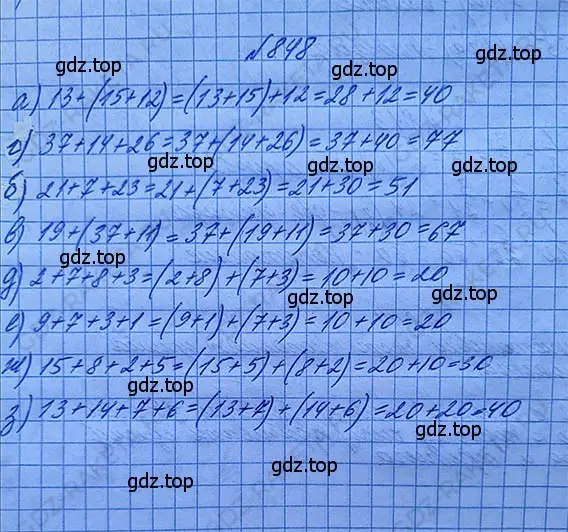 №848
gdz.top gdz.top
а) 13+(15+12)=(13+15)+12=28+12=40
г) 37+14+26=37+(14+26)=37+40=77
gdz.top gdz.top
б) 21+7+23=21+(7+23)=21+30=51
в) 19+(37+11)=37+(19+11)=37+30=67
gdz.top
д) 2+7+8+3=(2+8)+(7+3)=10+10=20
gdz.top
е) 9+7+3+1=(9+1)+(7+3)=10+10=20
ж) 15+8+2+5=(15+5)+(8+2)=20+10=30
gdz.top
з) 13+14+7+6=(13+7)+(14+6)=20+20=40
gdz.top
gdz.top
gdz.top